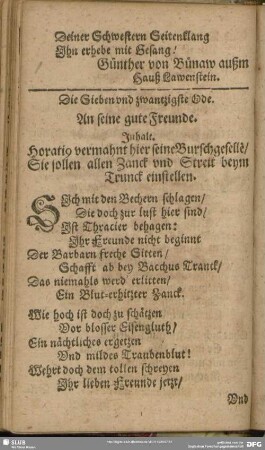 Deiner Schwestern Seitenklang
Ihn erhebe mit Gesang!
Günther von Bünaw außm
Hauß Lawenstein.
Die Sieben vnd zwantzigste Ode.
An seine gute Freunde.
Inhalt.
Horatio vermahnt hier seine Burschgesellē/
Sie sollen allen Zanck vnd Streit beym
Trunck einstellen.
SIch mit den Bechern schlagen/
Die doch zur lust hier sind/
Ist Thracier behagen:
Ihr Freunde nicht beginnt
Der Barbarn freche Sitten/
Schafft ab bey Bacchus Tranck/
Das niemahls werd erlitten/
Ein Blut-erhitzter Zanck.
Wie hoch ist doch zu schätzen
Vor blosser Eisengluth/
Ein nächtliches ergetzen
Vnd mildes Traubenblut!
Wehrt doch dem tollen schreyen
Ihr lieben Freunde jetzt/
Vnd
SLUB
DFG